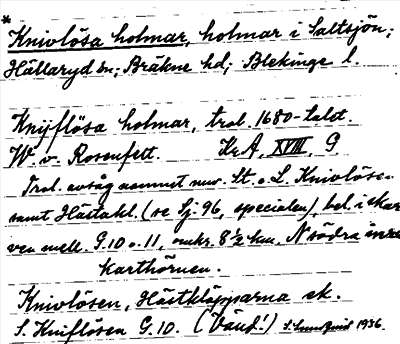 *
Knivlösa holmar, holmar i Saltsjön;
Hällaryd sn; Bräkne hd; Blekinge l.
Knÿflösa holmar, trol. 1680-talet.
W. v. Rosenfelt. KrA, XVIII, 9
Trol. avsåg namnet nuv. St. o L. Knivlösen
samt Hästakl. (se Sj. 96, specialen), bel. i skär
ven mell. G.10 o. 11, omkr. 8½ km. N södra inre
karthörnen.
Knivlösen, Hästklöpparna ek.
S. Kniflösen G.10. (Vänd!) S. Lundquist 1936.